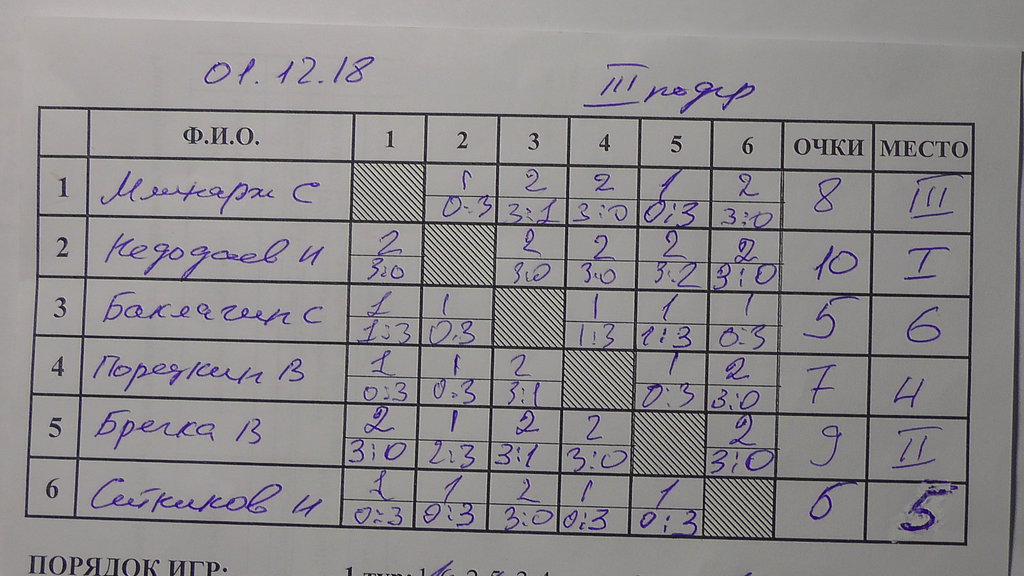 01.12.18 III подгр
Ф.И.О. 1 2 3 4 5 6 ОЧКИ МЕСТО
1 С 1 0:3 2 3:1 2 3:0 1 0:3 2 3:0 8 III
2 Недодаев И 2 3:0 2 3:0 2 3:0 2 3:2 2 3:0 10 I
3 Баклагин С 1 1:3 1 0:3 1 1:3 1 1:3 1 0:3 5 6
4 Порецкин В 1 0:3 1 0:3 2 3:1 1 0:3 2 3:0 7 4
5 Брегка В 2 3:0 1 2:3 2 3:1 2 3:0 2 3:0 9 II
6 Ситников И 1 0:3 1 0:3 2 3:0 1 0:3 1 0:3 6 5
ПОРЯДОК ИГР: 1 тур: